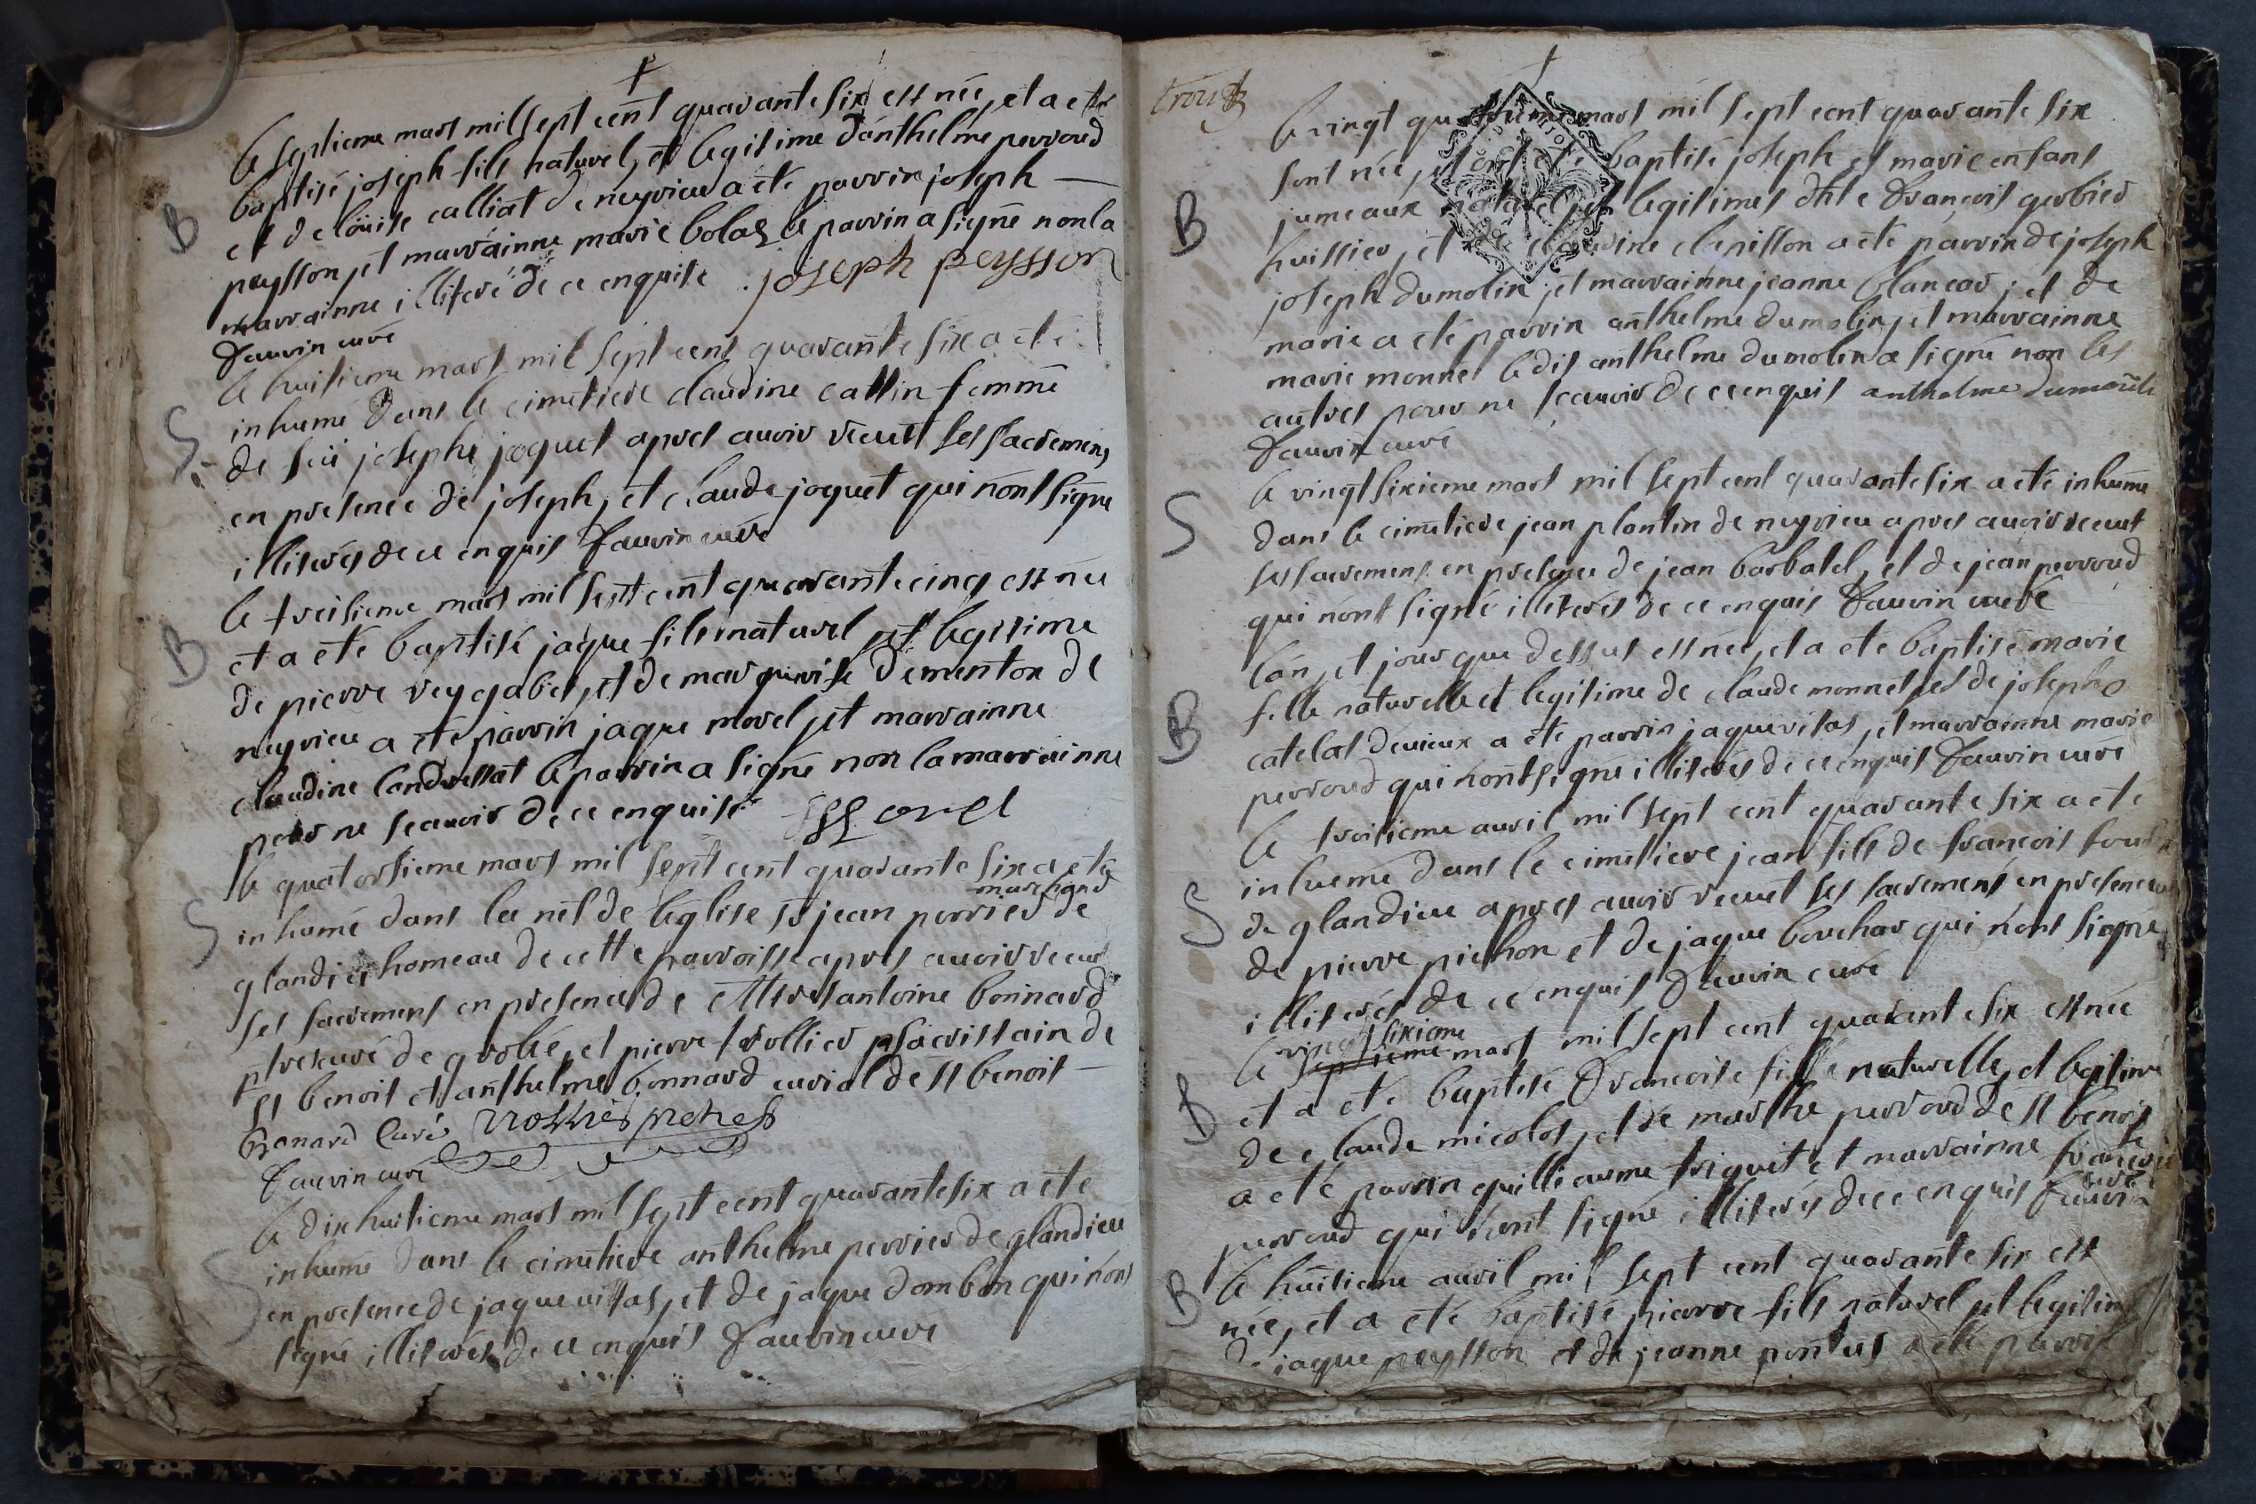 le septieme mars mil sept cent quarante six est née, et a eté
B
baptisé joseph fils naturel, et legitime d'anthelme perroud
et de loüise calliat de neyrieu a eté parrin joseph
peysson, et marrainne marie bolaz le parrin a signé non la
marrainne illiteré de ce enquise joseph peysson
fauvin curé
le huitieme mars mil sept cent quarante six a eté
S
inhumé dans le cimetiere claudine cattin femme
de feü josephe joquet apres avoir recut ses sacremens
en presence de joseph, et claude joquet qui n'ont signe
illiterés de ce enquis fauvin curé
le treisieme mars mil sept cent quarante cinq est née
B
et a eté baptisé jaque fils naturel, et legitime
de pierre reygabet, et de marguerite dementon de
neyrieu a eté parrin jaque morel, et marrainne
claudine landressat le parrin a signé non la marrainne
pour ne scavoir de ce enquise
le quatorsieme mars mil sept cent quarante six a eté
S
marchand
inhumé dans la nef de leglise sr jean perrier de
glandieu homeau de cette parroisse apres avoir recut
ses sacremens en presence de Mres antoine bonnard
ptre curé de grolée, et pierre trollier p sacristain de
st benoit et anthelme bonnard curial de st benoit
Bonard Curé trollier pretre
fauvin curé
le dix huitieme mars mil sept cent quarante six a eté
S
inhumé dans le cimetiere anthelme perrier de glandieu
en presence de jaque vittas, et de jaque dombon qui n'ont
signé illiterés de ce enquis fauvin curé
trois
le vingt quatrieme mars mil sept cent quarante six
sont née, et ont eté baptisé joseph et marie enfans
B
jumeaux naturel, et legitimes de françois gerbier
huissier, et de claudine clepisson a eté parrin de joseph
joseph dumolin, et marrainne jeanne blancar, et de
marie a eté parrin anthelme dumolin, et marrainne
marie monnet ledit anthelme dumolin a signé non les
autres pour ne scavoir de ce enquis anthelme dumoulin
fauvin curé
le vingt sixieme mars mil sept cent quarante six a eté inhumé
S
dans le cimetiere jean plantin de neyrieu apres avoir recut
ses sacremens en presence de jean barbatel, et de jean perroud
qui n'ont signé illiterés de ce enquis fauvin curé
l'an, et jour que dessus est née, et a eté baptisé marie
B
fille naturelle et legitime de claude monnet, et de josephe
catelas d'evieux a eté parrin jaque vitas, et marrainne marie
perroud qui n'ont signe illiterés de ce enquis fauvin curé
le troisieme avril mil sept cent quarante six a eté
inhumé dans le cimetiere jean fils de françois
S
de glandieu apres avoir recut ses sacremens en presence
de pierre pichon et de jaque bouchar qui n'ont signé
illiterés de ce enquis fauvin curé
vingt sixieme
le septieme mars mil sept cent quarante six est née
B
et a eté baptisé francoise fille naturelle, et legitime
de claude micolos, et de marthe perroud de st benoit
a eté parrin guillieaume triquet et marrainne francoise
perroud qui n'ont signé illiterés de ce enquis fauvin
curé
B
le huitieme avril mil sept cent quarante six est
née, et a eté baptisé pierre fils naturel, et legitime
de jaque peysson et de jeanne pontus a eté parrin